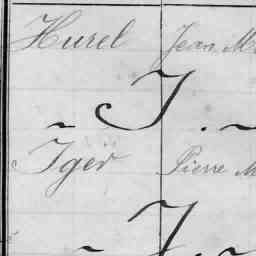 Hurel Jean M
~ I . ~
Iger Pierre M
~ J . ~